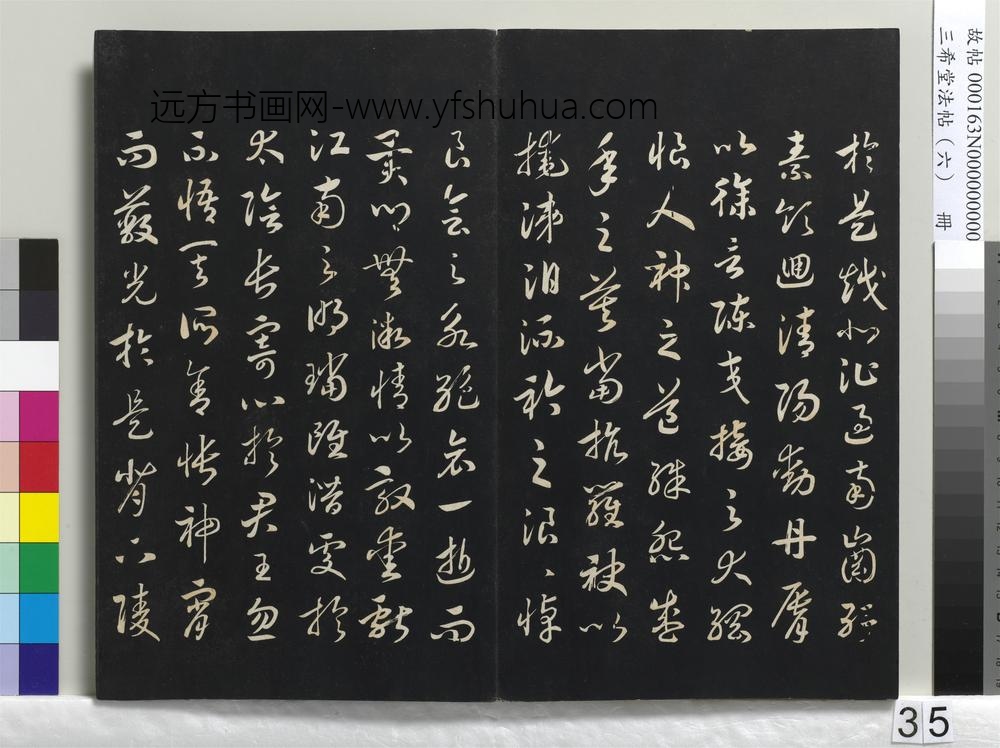 於是越北沚過南崗紆
素領迴清陽動丹脣
以徐言陳交接之大綱
恨人神之道殊怨盛
年之莫當抗羅袂以
掩涕淚流衿之浪〻悼
良會之永絕哀一逝而
異鄉無微情以效愛獻
江南之明璫雖潛處於
太陰長寄心於君王忽
不悟其所舍悵神宵
而蔽光於是背下陵
远方书画网-www.yfshuhua.com
故帖 000163N000000000
三希堂法帖（六） 冊
35